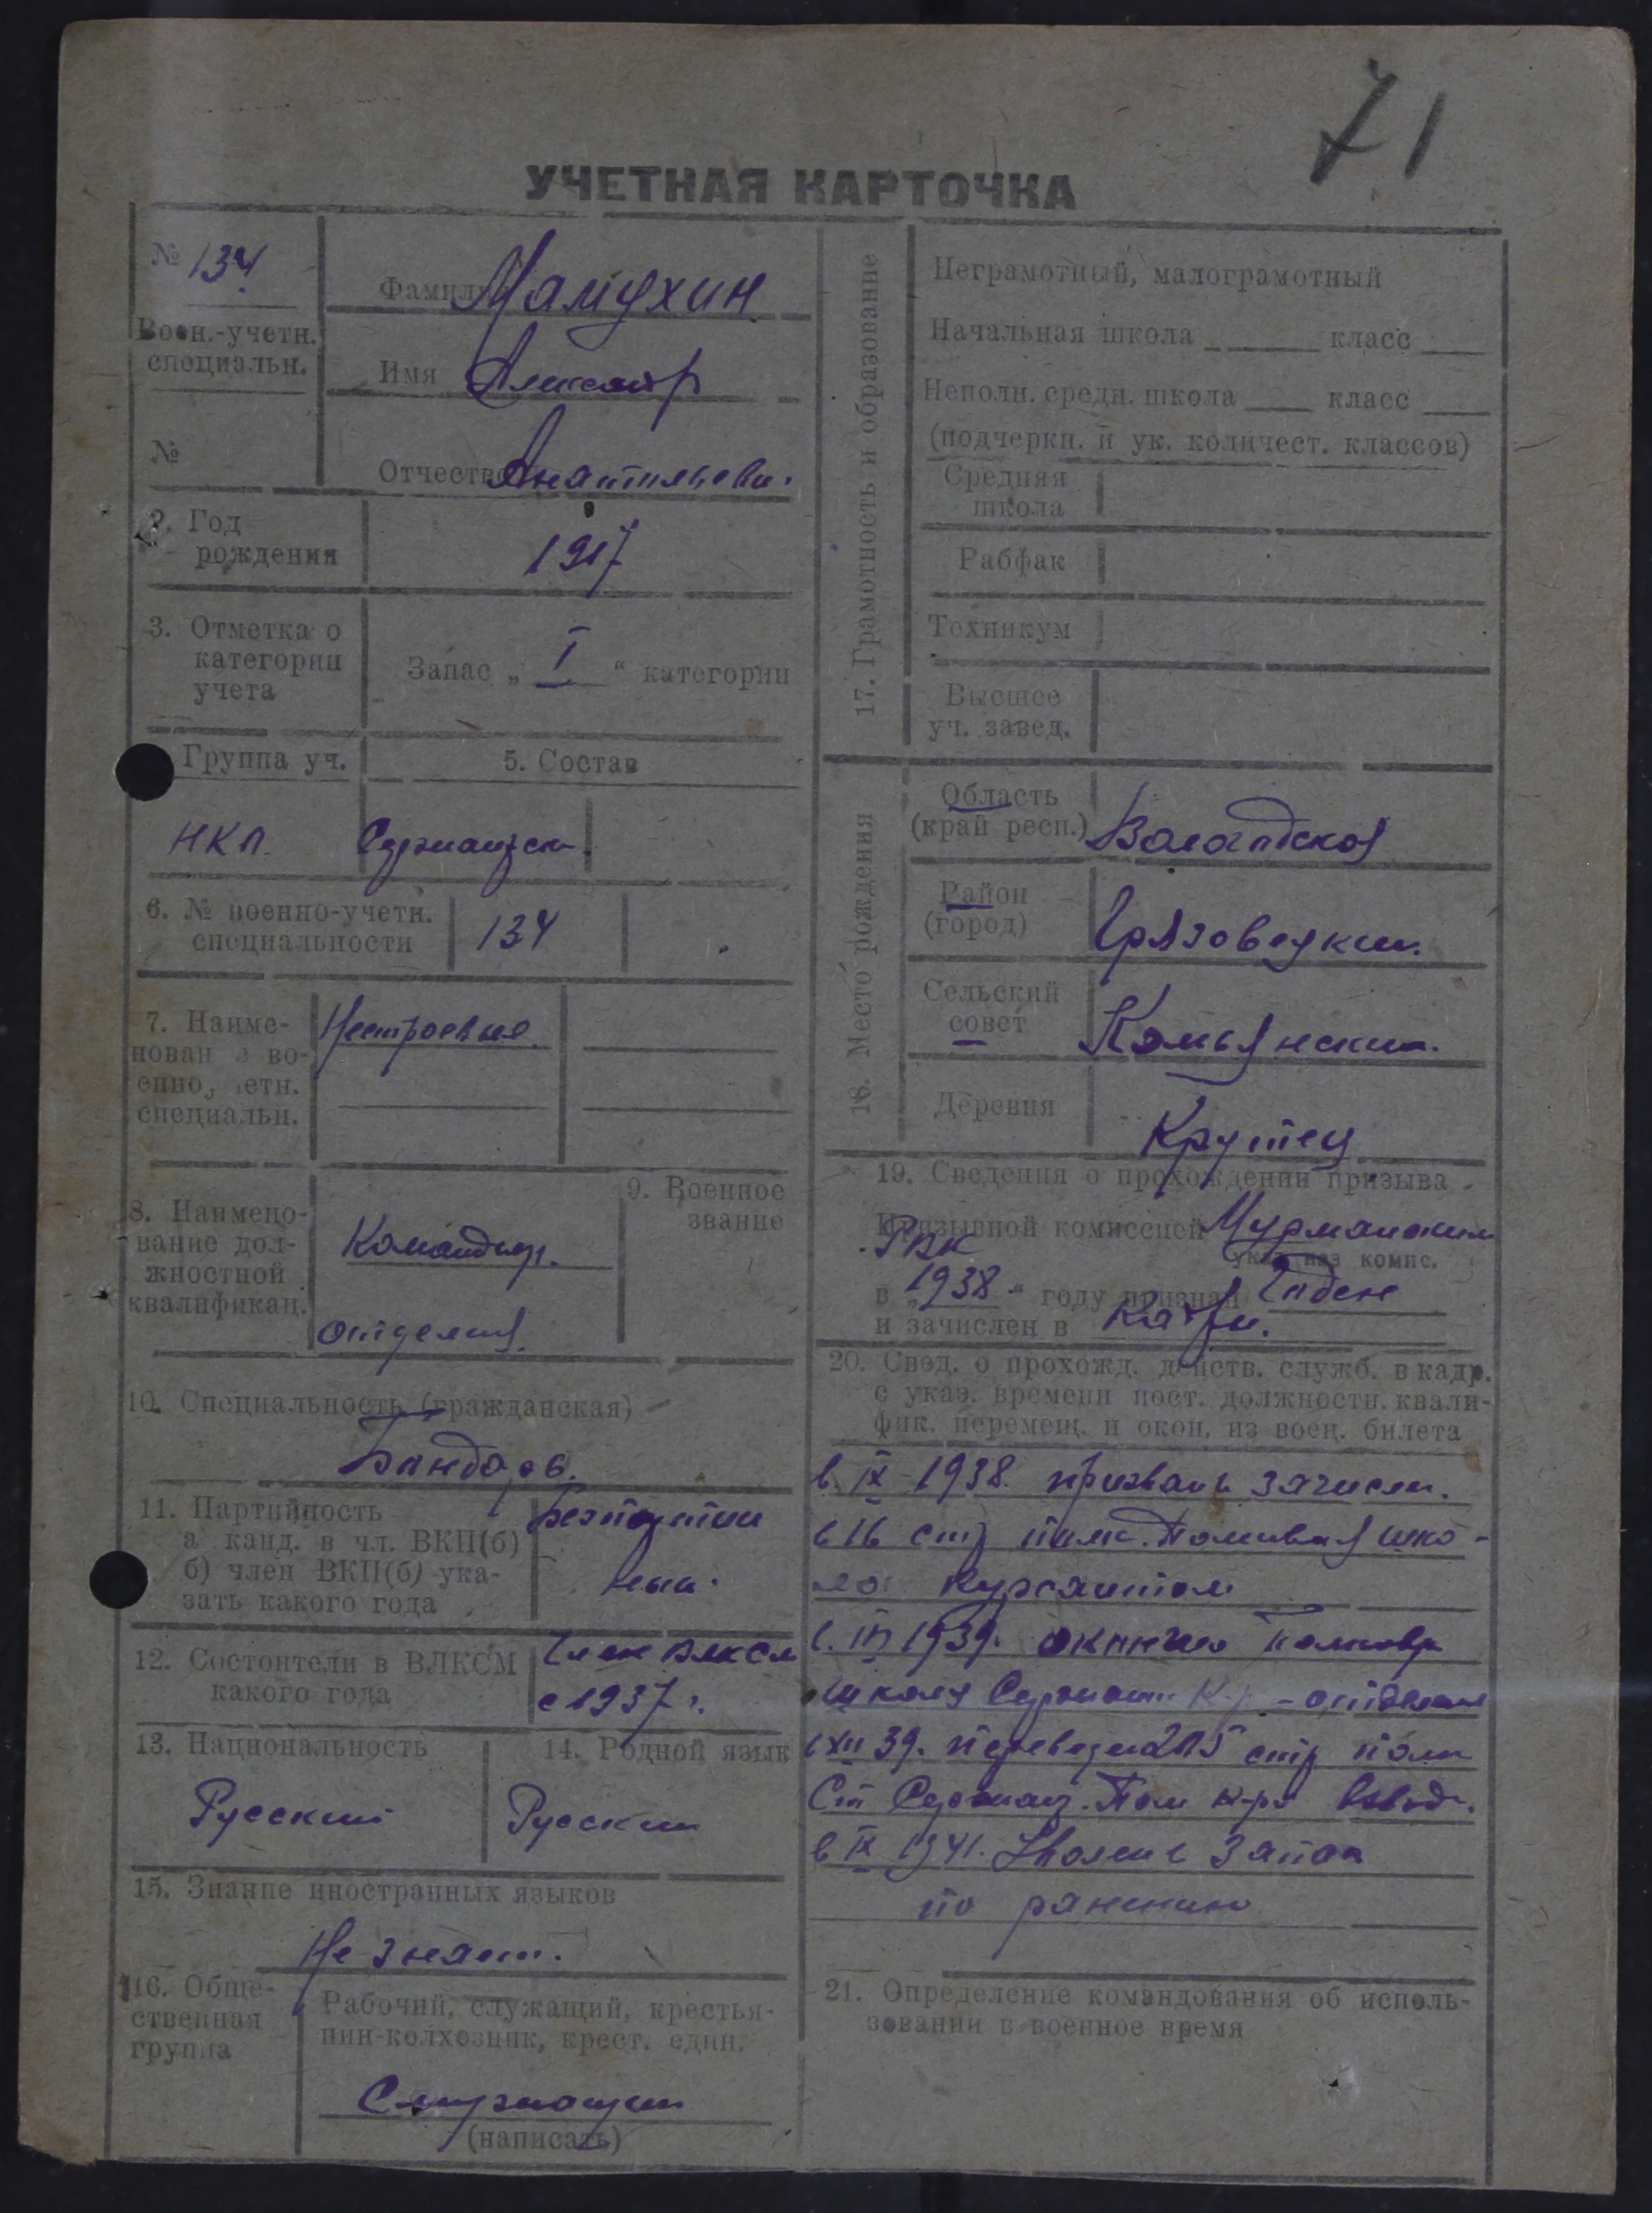 71
УЧЕТНАЯ КАРТОЧКА
№ 134
Воен.-учетн.
специальн.
№
Фамилия Мамухин
Имя
Отчество
2. Год
рождения
1917
3. Отметка о
категории
учета
Запас „ I “ категории
Группа уч.
5. Состав
НКП.
6. № военно-учетн.
специальности
134
7. Наиме-
нован е во-
енно, етн.
специальн.
Нестроевые
8. Наимено-
вание дол-
жностной
квалификац.
Командир
отделения
9. Военное
звание
10. Специальность (гражданская)
11. Партийность
а канд. в чл. ВКП(б)
б) член ВКП(б) ука-
зать какого года
Безпартий
ный
12. Состоит ли в ВЛКСМ
какого года
Член ВЛКСМ
с 1937 г.
13. Национальность
Русский
14. Родной язык
Русский
15. Знание иностранных языков
Не знает.
16. Обще-
ственная
группа
Рабочий, служащий, крестья-
нин-колхозник, крест. един.
Служащий
(написать)
17. Грамотность и образование
Неграмотный, малограмотный
Начальная школа класс
Неполн. средн. школа класс
(подчеркн. и ук. количест. классов)
Средняя
школа
Рабфак
Техникум
Высшее
уч. завед.
18. Место рождения
Область
(край респ.)
Вологодская
Район
(город)
Грязовецкий
Сельский
совет
Комьянский
Деревня
Крутец
19. Сведения о прохождении призыва
Призывной комиссией Мурманским
РВК
указ. наз комис.
в „ 1938 “ году признан Годен
и зачислен в
20. Свед. о прохожд. действ. служб. в кадр.
с указ. времени пост. должностн. квали-
фик. перемещ. и окон. из воен. билета
в IX 1938 призван и зачислен
в 16 стр полк. Полковая шко-
ла курсантом
1939. окончил полков
школу К-р - отделения
в XII 39. переведен стр полк
Ст Сержант. Пом к-ра взвода.
в IX 1941. Уволен в запас
по ранению
21. Определение командования об исполь-
зовании в военное время